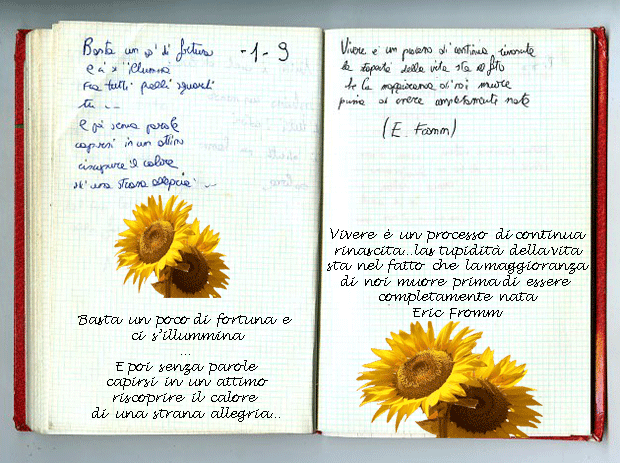 Basta un pò di fortuna -1-9
e ci s'illumina
Fra tutti quelli sguardi
tu ...
E poi senza parole
capirsi in un attimo
riscoprire il calore
di una strana allegria ...
Basta un poco di fortuna e
ci s'illummina
...
E poi senza parole
capirsi in un attimo
riscoprire il calore
di una strana allegria...
Vivere è un processo di continua rinascita
la stupidità della vita sta nel fatto
che la maggioranza di noi muore
prima di essere completamente nata
(E. Fromm)
Vivere è un processo di continua
rinascita...las tupidità della vita
sta nel fatto che la maggioranza
di noi muore prima di essere
completamente nata
Eric Fromm